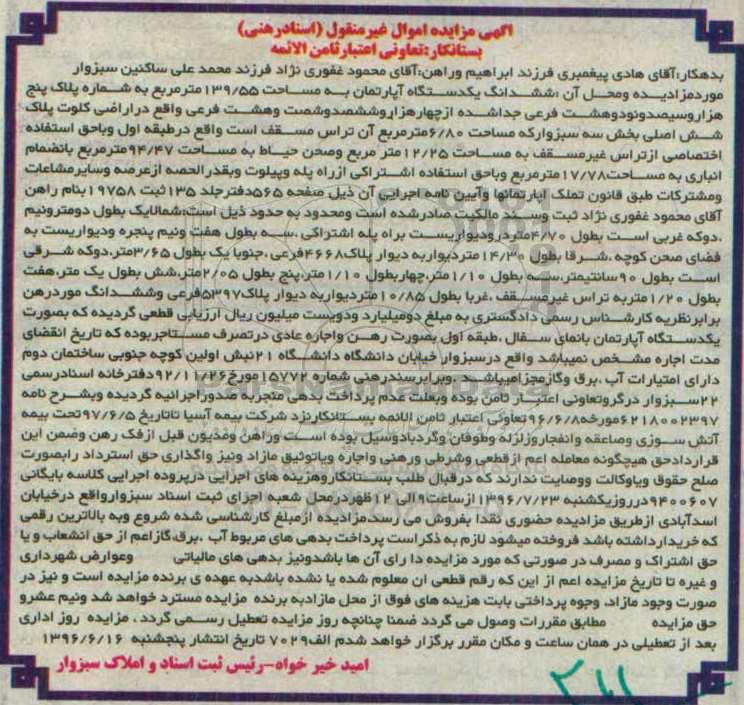 آگهی مزایده اموال غیرمنقول (اسنادرهنی)
بستانکار:تعاونی اعتبارثامن الائمه
بدهکار:آقای هادی پیغمبری فرزند ابراهیم وراهن:آقای محمود غفوری نژاد فرزند محمد علی ساکنین سبزوار
موردمزایدیده ومحل آن :ششدانگ یکدستگاه آپارتمان به مساحت ۱۳۹/۵۵مترمربع به شماره پلاک پنج
هزاروسیصدونودوهشت فرعی جداشده ازچهارهزاروششصدوشصت وهشت فرعی واقع دراراضی کلوت پلاک
شش اصلی بخش سه سبزوارکه مساحت ۶/۸۰مترمربع آن تراس مسقف است واقع درطبقه اول وباحق استفاده
اختصاصی ازتراس غیرمسقف به مساحت ۱۲/۲۵متر مربع وصحن حیاط به مساحت ۹۴/۴۷مترمربع بانضمام
انباری به مساحت۱۷/۷۸مترمربع وباحق استفاده اشتراکی ازراه پله وپیلوت وبقدرالحصه ازعرصه وسایرمشاعات
ومشترکات طبق قانون تملک اپارتمانها وآیین نامه اجرایی آن ذیل صفحه ۵۶۵دفترجلد ۱۳۵ثبت ۱۹۷۵۸بنام راهن
آقای محمود غفوری نژاد ثبت وسند مالکیت صادرشده است ومحدود به حدود ذیل است:شمالایک بطول دومترونیم
،دوکه غربی است بطول ۴/۷۰متردرودیواریست براه پله اشتراکی ،سه بطول هفت ونیم پنجره ودیواریست به
فضای صحن کوچه ،شرقا بطول ۱۴/۳۰متردیواربه دیوار پلاک۴۶۶۸فرعی ،جنوبا یک بطول ۳/۶۵متر،دوکه شرقی
است بطول ۹۰سانتیمتر،سه بطول ۱/۱۰متر،چهاربطول ۱/۱۰متر،پنج بطول ۲/۰۵متر،شش بطول یک متر،هفت
بطول ۱/۲۰متربه تراس غیرمسقف ،غربا بطول ۱۰/۸۵متردیواربه دیوار پلاک۵۳۹۷فرعی وششدانگ موردرهن
برابرنظریه کارشناس رسمی دادگستری به مبلغ دومیلیارد ودویست میلیون ریال ارزیابی قطعی گردیده که بصورت
یکدستگاه آپارتمان بانمای سفال ،طبقه اول بصورت رهن واجاره عادی درتصرف مستاجربوده که تاریخ انقضای
مدت اجاره مشخص نمیباشد واقع درسبزوار خیابان دانشگاه دانشگاه ۲۱نبش اولین کوچه جنوبی ساختمان دوم
دارای امتیازات آب ،برق وگازمجزامیباشد. وبرابرسندرهنی شماره ۱۵۷۷۲مورخ۹۲/۱۱/۲۶دفترخانه اسنادرسمی
۲۲سبزوار درگروتعاونی اعتبار ثامن بوده وبعلت عدم پرداخت بدهی منجربه صدوراجرائیه گردیده وبشرح نامه
۶۲۱۸۰۰۲۳۹۷مورخه۹۶/۶/۸تعاونی اعتبار ثامن الائمه بستانکارنزد شرکت بیمه آسیا تاتاریخ ۹۷/۶/۵تحت بیمه
آتش سوزی وصاعقه وانفجاروزلزله وطوفان وگردبادوسیل بوده است وراهن ومدیون قبل ازفک رهن وضمن این
قراردادحق هیچگونه معامله اعم ازقطعی وشرطی ورهنی واجاره ویاتوثیق مازاد ونیز واگذاری حق استرداد رابصورت
صلح حقوق ویاوکالت ووصایت ندارند که درقبال طلب بستانکاروهزینه های اجرایی درپروده اجرایی کلاسه بایگانی
۹۴۰۰۶۰۷درروزیکشنبه ۱۳۹۶/۷/۲۳ ازساعت۹الی ۱۲ظهردرمحل شعبه اجرای ثبت اسناد سبزوارواقع درخیابان
اسدآبادی ازطریق مزادیده حضوری نقدا بفروش می رسد،مزادیده ازمبلغ کارشناسی شده شروع وبه بالاترین رقمی
که خریدارداشته باشد فروخته میشود لازم به ذکراست پرداخت بدهی های مربوط آب ،برق،گازاعم از حق انشعاب و یا
حق اشتراک و مصرف در صورتی که مورد مزایده دا رای آن ها باشدونیز بدهی های مالیاتی وعوارض شهرداری
و غیره تا تاریخ مزایده اعم از این که رقم قطعی ان معلوم شده یا نشده باشدبه عهده ی برنده مزایده است و نیز در
صورت وجود مازاد، وجوه پرداختی بابت هزینه های فوق از محل مازادبه برنده مزایده مسترد خواهد شد ونیم عشرو
حق مزایده مطابق مقررات وصول می گردد ضمنا چنانچه روز مزایده تعطیل رسمی گردد ، مزایده روز اداری
بعد از تعطیلی در همان ساعت و مکان مقرر برگزار خواهد شدم الف۷۰۲۹ تاریخ انتشار پنجشنبه ۱۳۹۶/۶/۱۶
امید خیر خواه-رئیس ثبت اسناد و املاک سبزوار